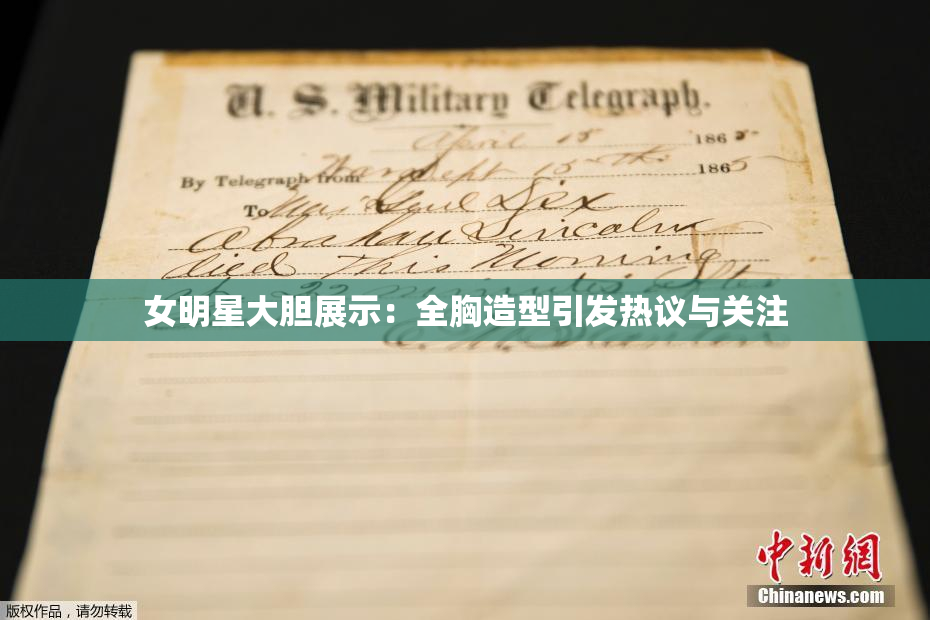 U. S. Military Telegraph.
April 15 1865
By Telegraph from War Dept 15th 1865
To Maj Genl Dix
Abraham Lincoln
died This Morning
at 22 minutes after
女明星大胆展示：全胸造型引发热议与关注
E. M. Stanton
中新网
Chinanews.com
版权作品，请勿转载